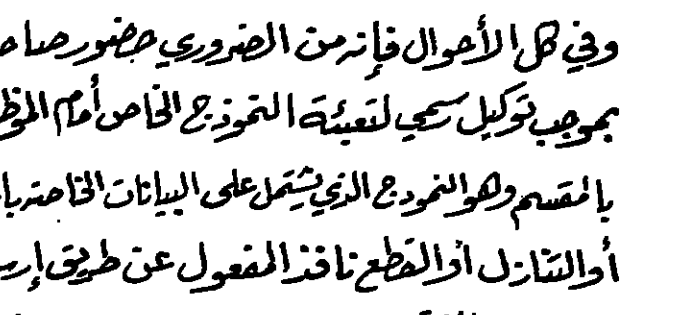 وفي كل الأحوال فإنه من الضروري حضور صا
بموجب توكيل رسمي لتعبئة النموذج الخاص أمام الموظ
بالقسم وهو النموذج الذي يشتمل على البيانات الخاصة با
أو التنازل أو القطع نافذ المفعول عن طريق إر